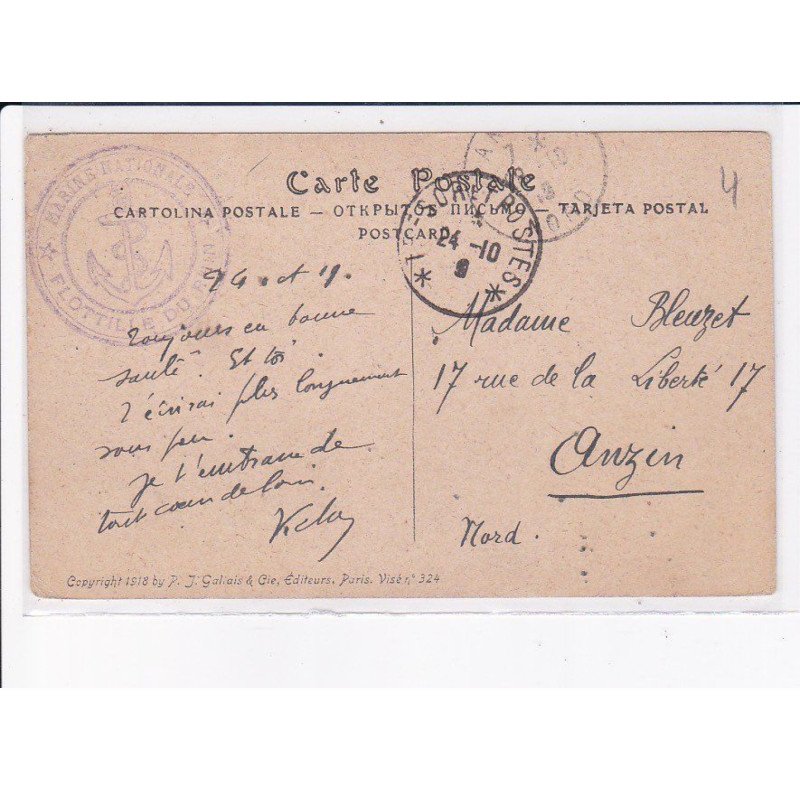 4
Carte Postale
CARTOLINA POSTALE — ОТКРЫТОЕ ПИСЬМО — TARJETA POSTAL
POSTCARD
★ MARINE NATIONALE ★
FLOTTILLE DU RHIN
TRESOR ET POSTES
24-10
9
Toujours en bonne
santé. Et toi
T'écrirai plus longuement
sous peu.
Je t'embrasse de
tout cœur de loin.
Madame Bleuzet
17 rue de la Liberté 17
Anzin
Nord.
Copyright 1918 by P. J. Gallais & Cie, Éditeurs, Paris. Visé n° 324